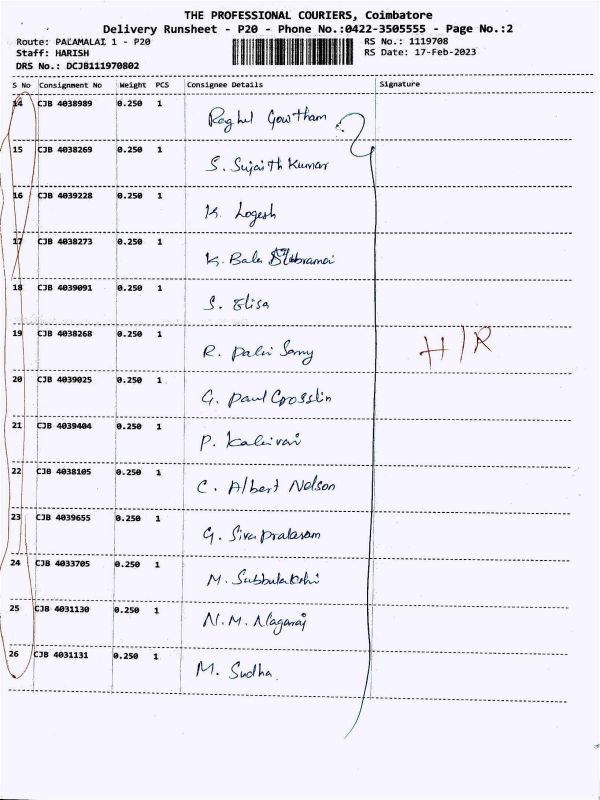 THE PROFESSIONAL COURIERS, Coimbatore
Delivery Runsheet - P20 - Phone No.:0422-3505555 - Page No.:2
Route: PALAMALAI 1 - P20 RS No.: 1119708
Staff: HARISH RS Date: 17-Feb-2023
DRS No.: DCJB111970802
S No Consignment No Weight PCS Consignee Details Signature
14 CJB 4038989 0.250 1 Gowtham
15 CJB 4038269 0.250 1 S. Sujaith Kumar
16 CJB 4039228 0.250 1 K. Logesh
17 CJB 4038273 0.250 1 K. Bala
18 CJB 4039091 0.250 1 S. Elisa
19 CJB 4038268 0.250 1 R. Palni Samy H/R
20 CJB 4039025 0.250 1 G. Paul Crosslin
21 CJB 4039404 0.250 1 P. Kalaivai
22 CJB 4038105 0.250 1 C. Albert Nelson
23 CJB 4039655 0.250 1 G. Siva
24 CJB 4033705 0.250 1 M.
25 CJB 4031130 0.250 1 N.M. Nagaraj
26 CJB 4031131 0.250 1 M. Sudha